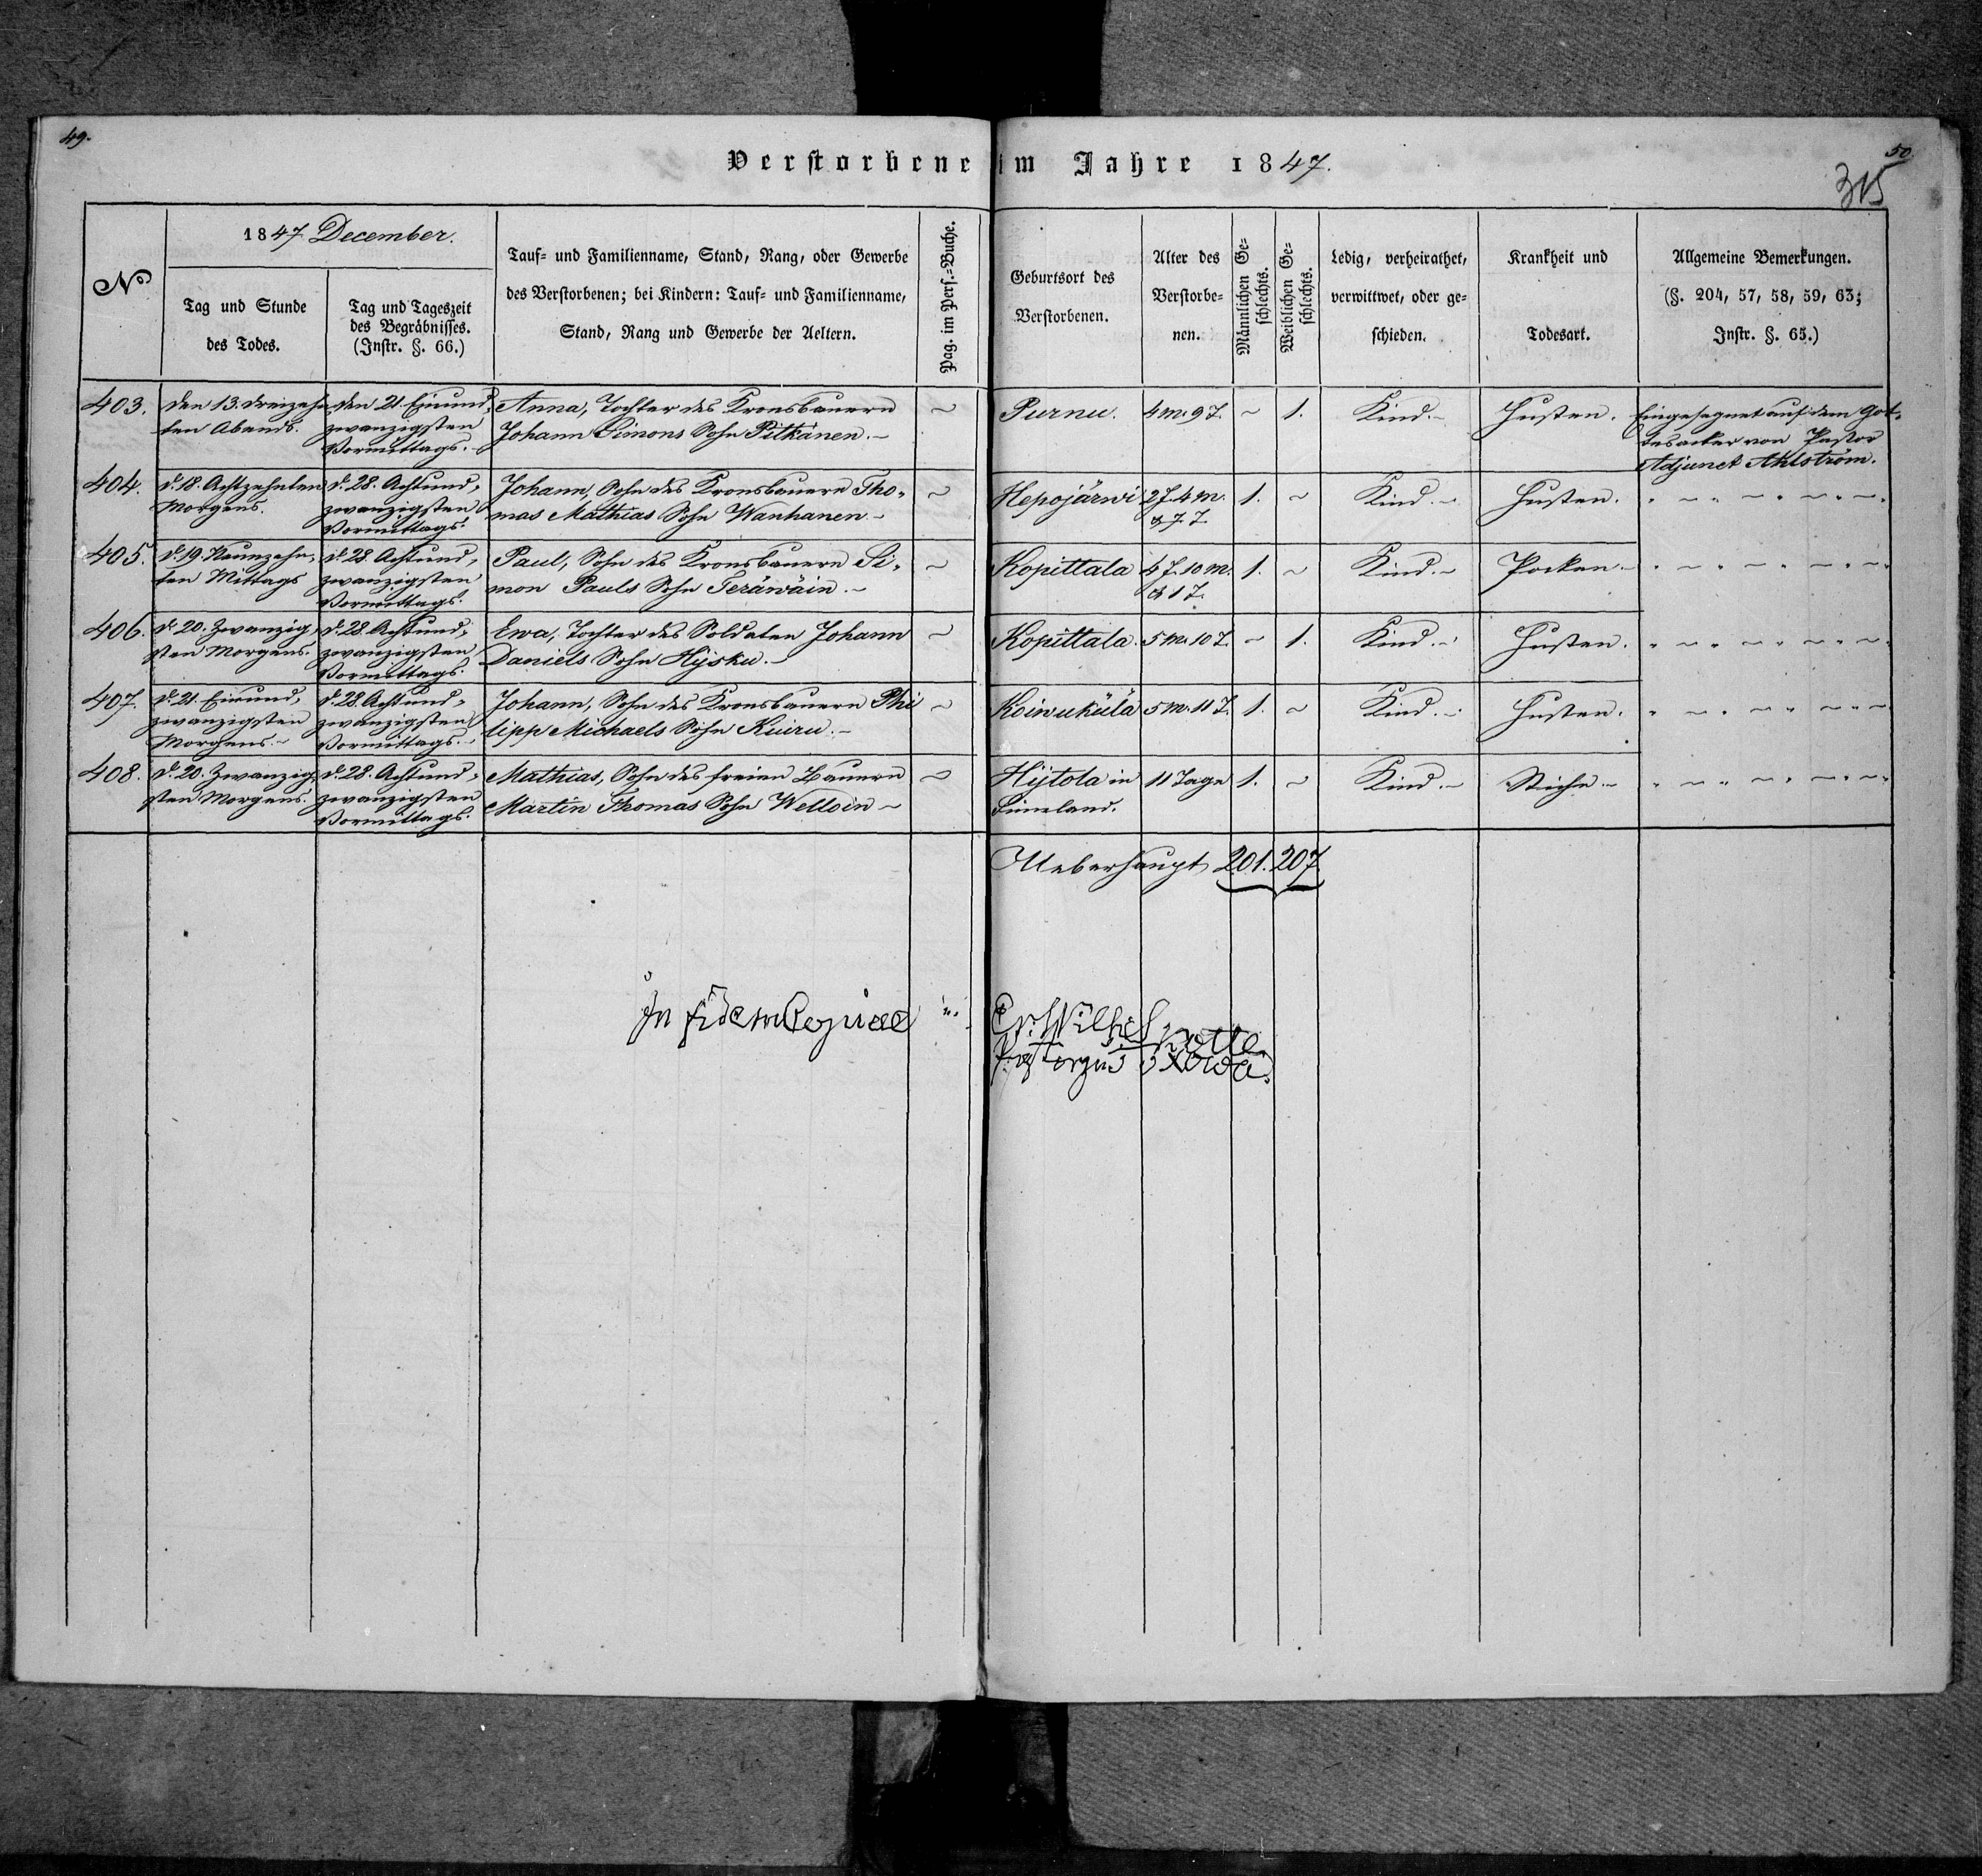 49.
50
315
Verstorbene im Jahre 1847.
No
1847 December.
Tag und Stunde
des Todes.
Tag und Tageszeit
des Begräbnisses.
(Instr. §. 66.)
Tauf= und Familienname, Stand, Rang, oder Gewerbe
des Verstorbenen; bei Kindern: Tauf= und Familienname,
Stand, Rang und Gewerbe der Aeltern.
Pag. im Pers.=Buche.
Geburtsort des
Verstorbenen.
Alter des
Verstorbe=
nen.
Männlichen Ge=
schlechts.
Weiblichen Ge=
schlechts.
Ledig, verheirathet,
verwittwet, oder ge=
schieden.
Krankheit und
Todesart.
Allgemeine Bemerkungen.
(§. 204, 57, 58, 59, 63;
Instr. §. 65.)
403.
den 13. dreizehn,
ten Abends.
den 21. Einund,
zwanzigsten
Vormittags.
Anna, Tochter des Kronsbauern
Johann Simons Sohn Pitkänen.
Purnu.
4 m. 9 T.
1.
Kind.
Husten.
Eingesegnet auf dem Got=
tesacker von Pastor
Adjunct Ahlström.
404.
d. 18. Achtzehnten
Morgens.
d. 28. Achtund,
zwanzigsten
Vormittags.
Johann, Sohn des Kronsbauern Tho=
mas Mathias Sohn Wanhanen
Hepojärwi
2 J. 4 m.
& 7 T.
1.
Kind
Husten.
405.
d. 19. Neunzehn,
ten Mittags
d. 28. Achtund,
zwanzigsten
Vormittags.
Paul, Sohn des Kronsbauern Si=
mon Pauls Sohn Teräwäin.
Kopittala
4 J. 10 m.
& 1 T.
1.
Kind.
Pocken
406.
d. 20. Zwanzig,
sten Morgens.
d. 28. Achtund,
zwanzigsten
Vormittags.
Ewa, Tochter des Soldaten Johann
Daniels Sohn Hijsku.
Kopittala.
5 m. 10 T.
1.
Kind.
Husten.
407.
d. 21. Einund,
zwanzigsten
Morgens.
d. 28. Achtund,
zwanzigsten
Vormittags.
Johann, Sohn des Kronsbauern Phi
lipp Michaels Sohn Kuiru.
Koiwukülä
5 m. 11 T.
1.
Kind.
Husten.
408.
d. 20. Zwanzig,
sten Morgens.
d. 28. Achtund,
zwanzigsten
Vormittags.
Mathias, Sohn des freien Bauern
Martin Thomas Sohn Welloin
Hijtola in
11 Tage
1.
Kind.
Stiche
Ueberhaupt 201. 207.
In fidem